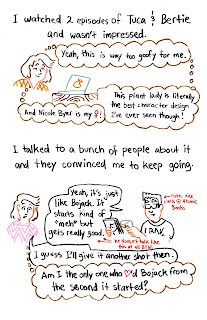 I watched 2 episodes of Tuca & Bertie
and wasn't impressed.
Yeah, this is way too goofy for me.
This plant lady is literally
the best character design
I've ever seen though!
And Nicole Byer is my ♀!
I talked to a bunch of people about it
and they convinced me to keep going.
Yeah, it's just
like Bojack. It
starts kind of
"meh" but
gets really good.
clerk @ Atomic
Books
he doesn't talk like
this at all BTW
I guess I'll give it another shot then.
Am I the only one who ♥'d Bojack from
the second it started?